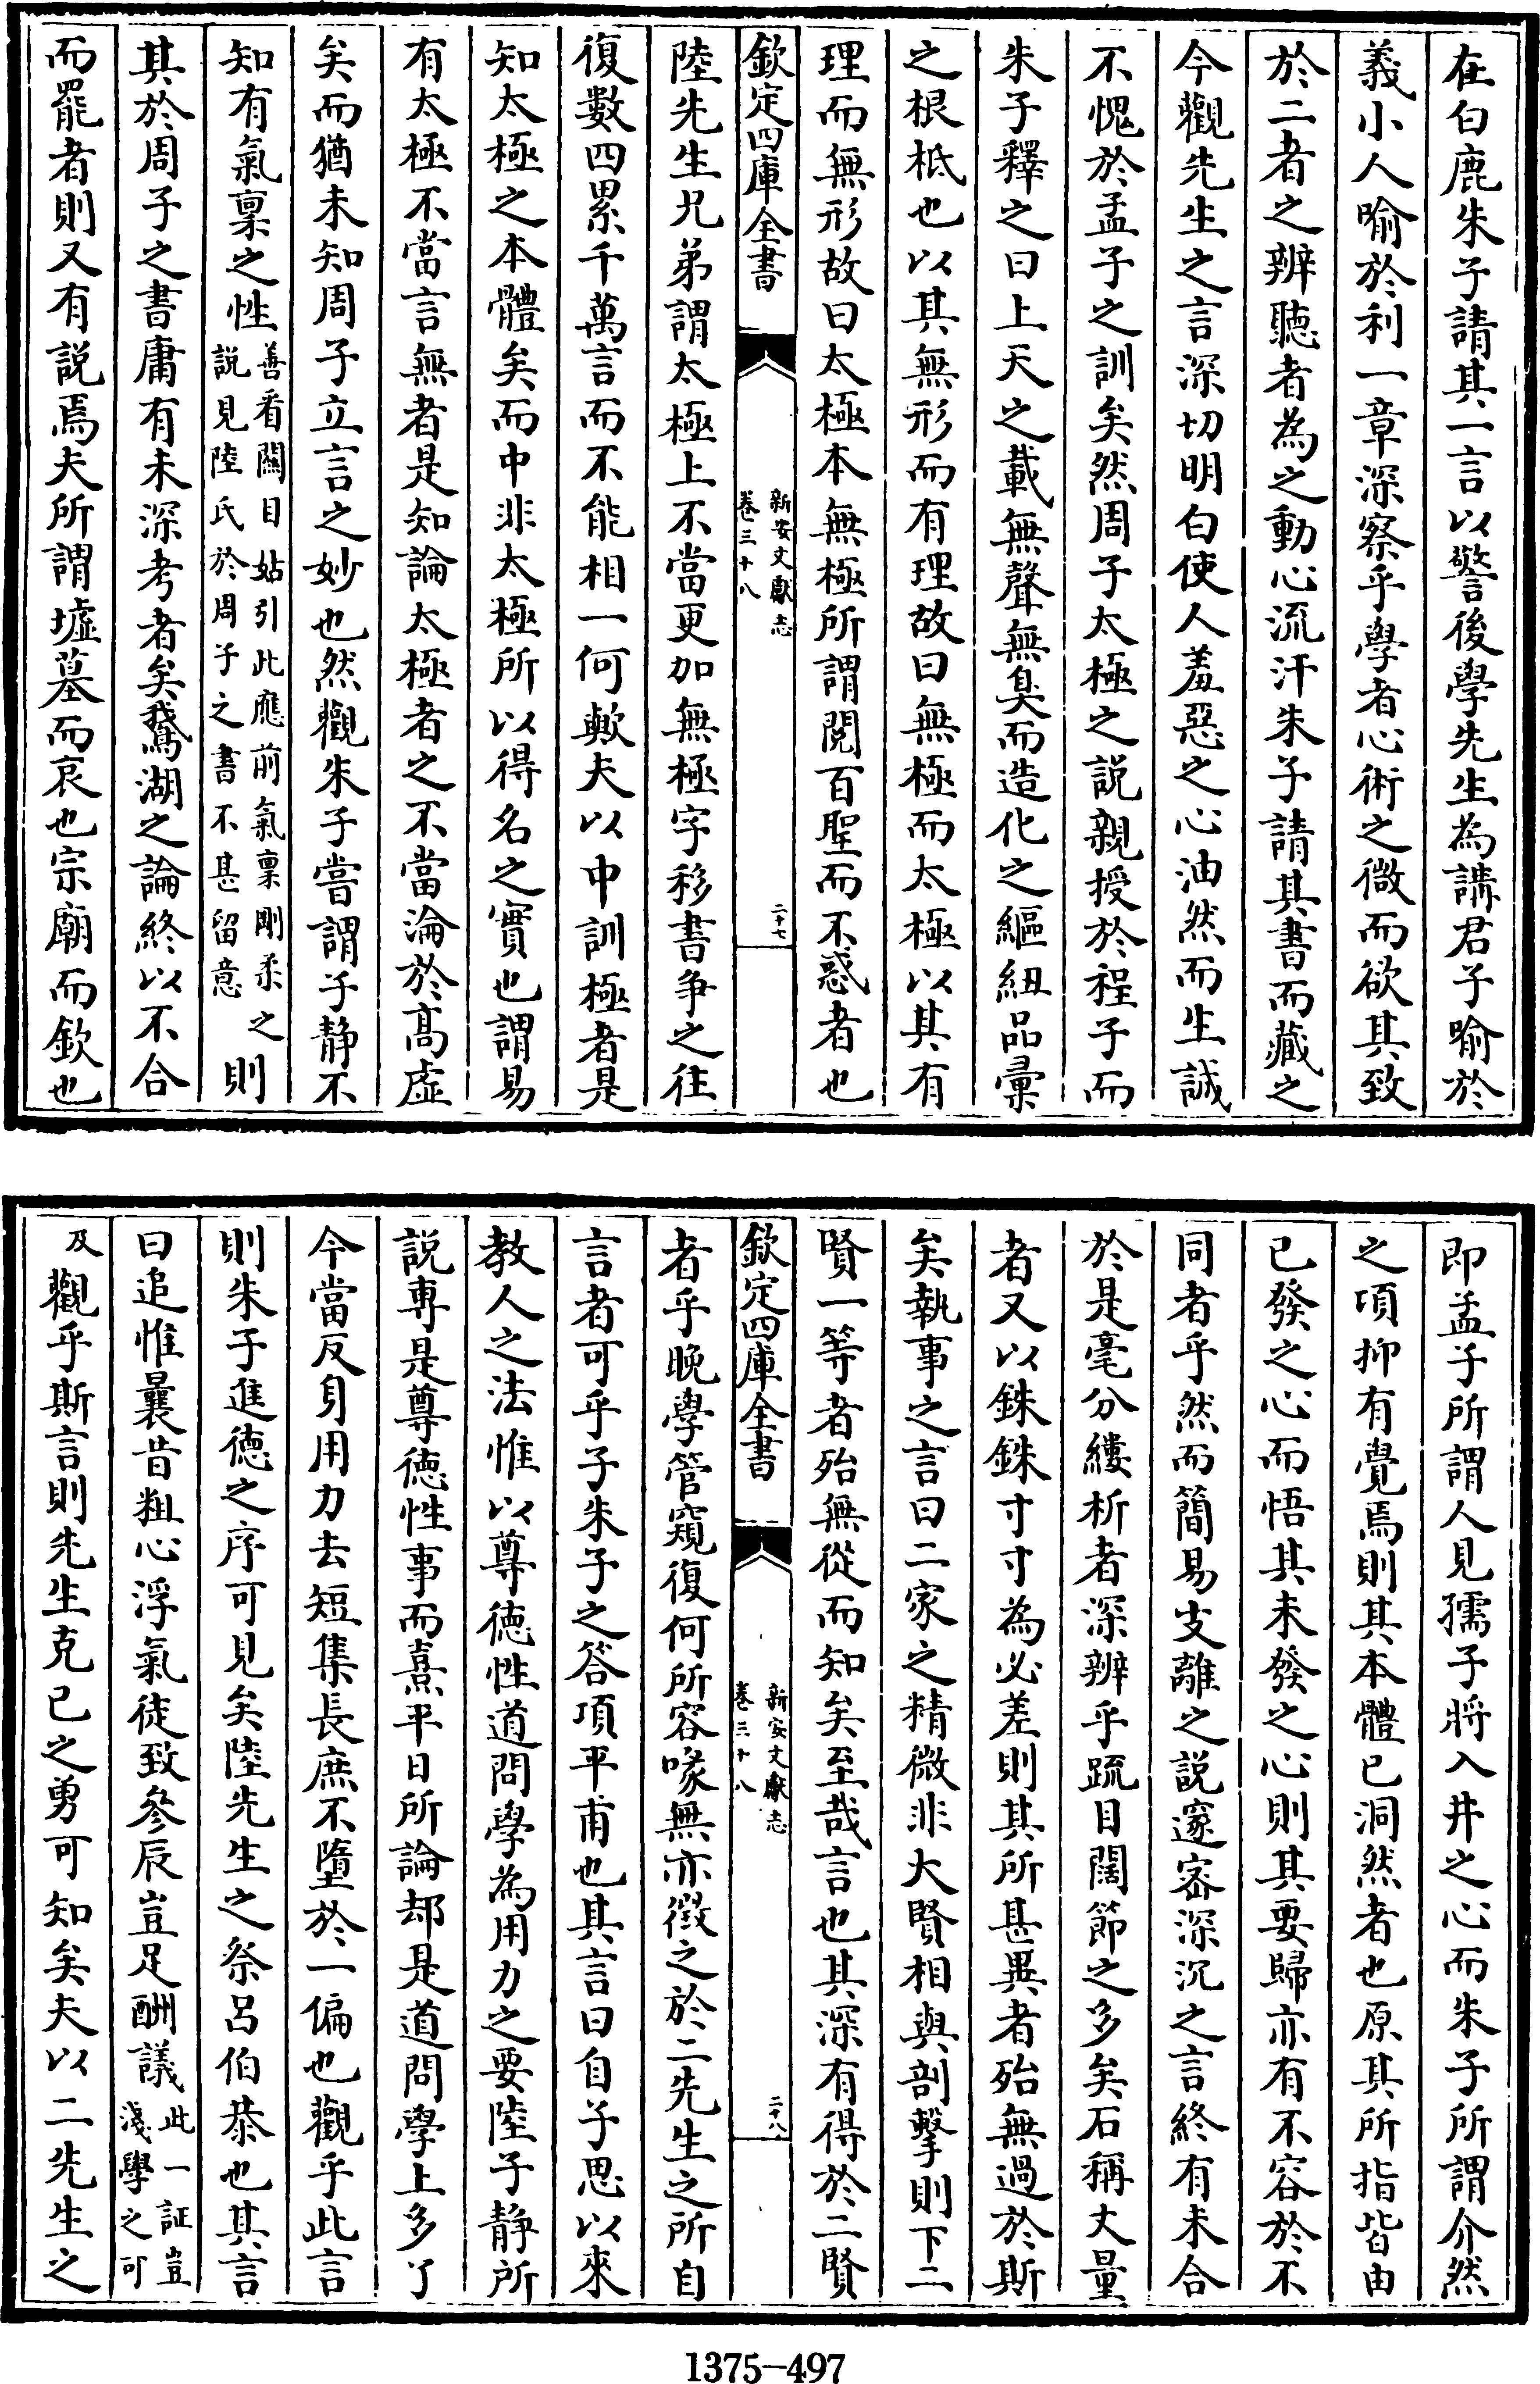 在白鹿朱子請其一言以警後學先生為講君子喻於
義小人喻於利一章深察乎學者心術之微而欲其致
於二者之辨聽者為之動心流汗朱子請其書而藏之
今觀先生之言深切明白使人羞惡之心油然而生誠
不愧於孟子之訓矣然周子太極之説親授於程子而
朱子釋之曰上天之載無聲無臭而造化之樞紐品彙
之根柢也以其無形而有理故曰無極而太極以其有
理而無形故曰太極本無極所謂閲百聖而不惑者也
欽定四庫全書
新安文獻志
卷三十八
二十七
陸先生兄弟謂太極上不當更加無極字移書争之往
復數四累千萬言而不能相一何歟夫以中訓極者是
知太極之本體矣而中非太極所以得名之實也謂易
有太極不當言無者是知論太極者之不當淪於髙虚
矣而猶未知周子立言之妙也然觀朱子嘗謂子静不
知有氣稟之性善看闗目姑引此應前氣稟剛柔之説見陸氏於周子之書不甚留意則
其於周子之書庸有未深考者矣鵞湖之論終以不合
而罷者則又有説焉夫所謂墟墓而哀也宗廟而欽也
即孟子所謂人見孺子將入井之心而朱子所謂介然
之項抑有覺焉則其本體已洞然者也原其所指皆由
已發之心而悟其未發之心則其要歸亦有不容於不
同者乎然而簡易支離之説邃宻深沉之言終有未合
於是毫分縷析者深辨乎疏目闊節之多矣石稱丈量
者又以銖銖寸寸為必差則其所甚異者殆無過於斯
矣執事之言曰二家之精微非大賢相與剖擊則下二
賢一等者殆無從而知矣至哉言也其深有得於二賢
欽定四庫全書
新安文獻志
卷三十八
二十八
者乎晚學管窺復何所容喙無亦徴之於二先生之所自
言者可乎子朱子之答項平甫也其言曰自子思以來
教人之法惟以尊徳性道問學為用力之要陸子静所
説専是尊徳性事而熹平日所論却是道問學上多了
今當反身用力去短集長庶不墮於一偏也觀乎此言
則朱子進徳之序可見矣陸先生之祭吕伯恭也其言
曰追惟曩昔粗心浮氣徒致參辰豈足酬議此一証豈淺學之可
及觀乎斯言則先生克己之勇可知矣夫以二先生之
1375-497